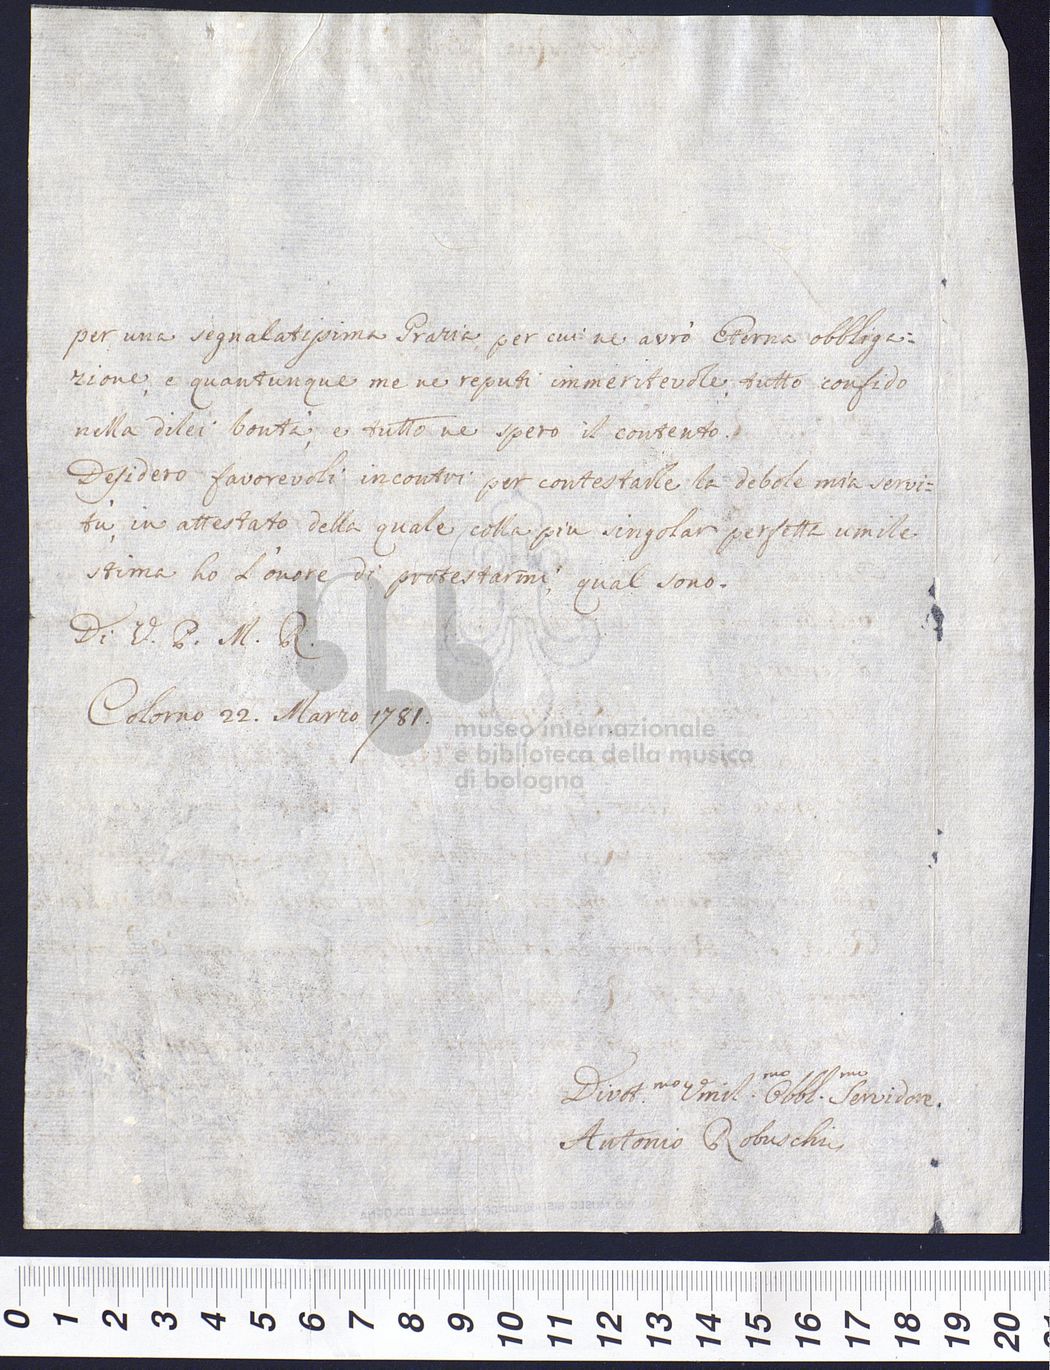 per una segnalatissima Grazia, per cui ne avrò Eterna obbliga=
zione, e quantunque me ne reputi immeritevole, tutto confido
nella dilei bontà, e tutto ne spero il contento.
Desidero favorevoli incontri per contestarlle la debole mia servi=
tù, in attestato della quale, colla più singolar perfetta umile
stima ho L'onore di protestarmi, qual sono.
Di V. P. M. R.
Colorno 22. Marzo 1781.
museo internazionale
e biblioteca della musica
di bologna
Divot.mo Vmil.mo Obbl.mo Servidore.
Antonio Robuschi
0 1 2 3 4 5 6 7 8 9 10 11 12 13 14 15 16 17 18 19 20